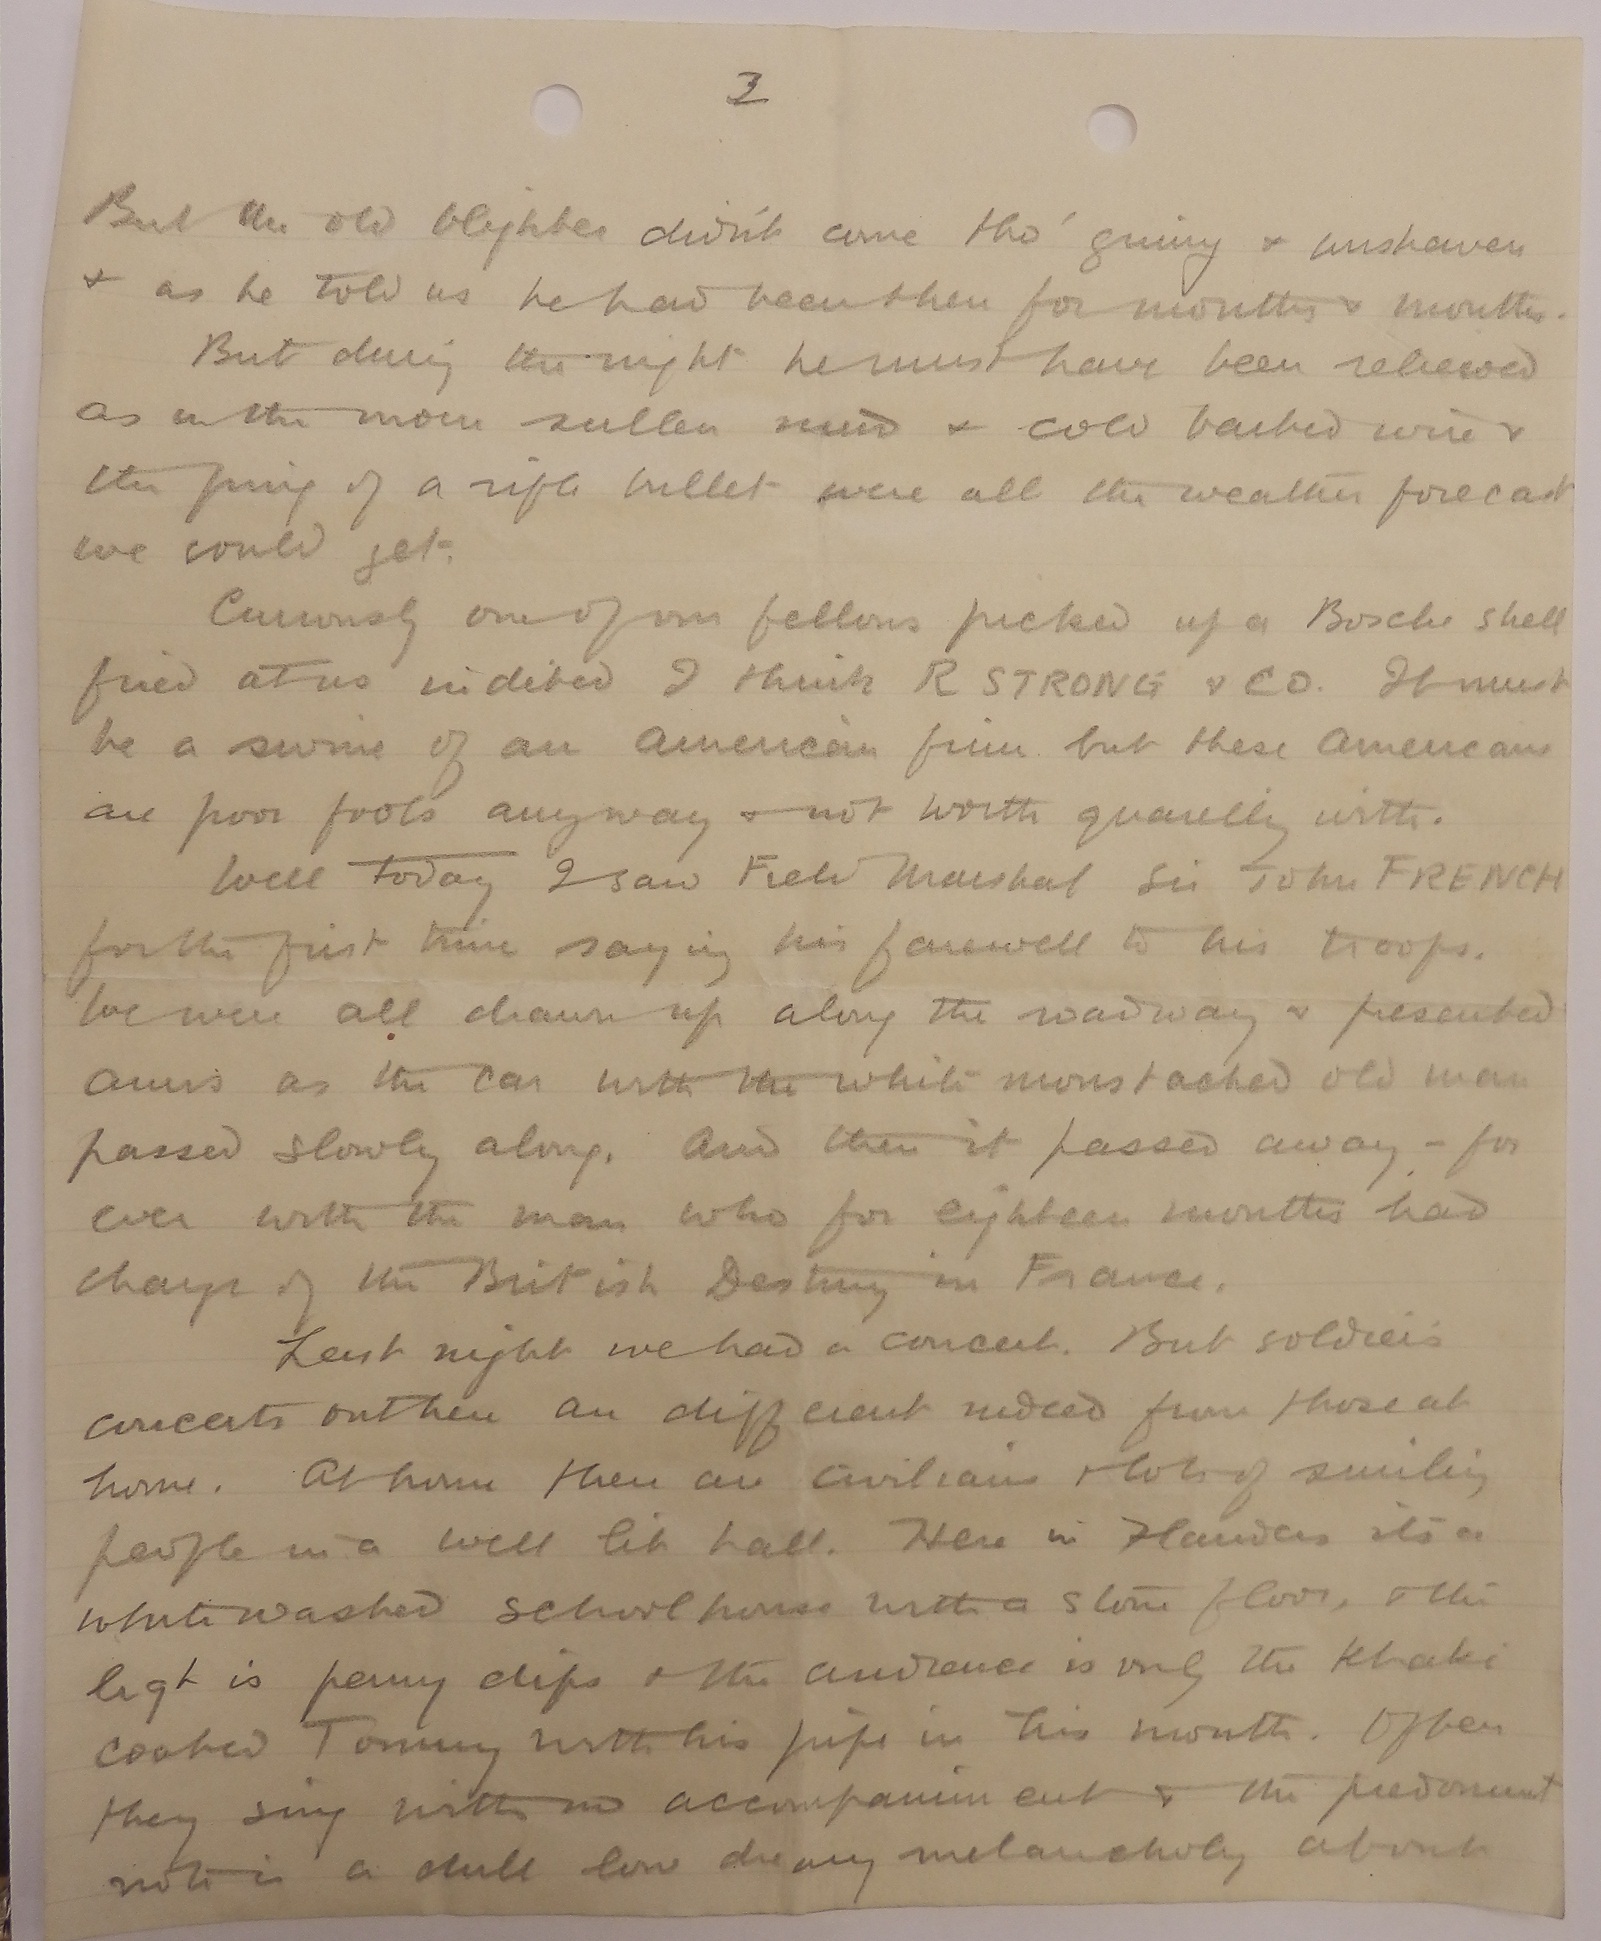 3
But the old blighter didn't come tho' grimy & unshaven
& as he told us he had been there for months & months.
But during the night he must have been relieved
as in the morn sullen mud & cold barbed wire &
the ping of a rifle bullet were all the weather forecast
we could get.
Curiously one of our fellows picked up a Bosche shell
fired at us indited I think R STRONG & CO. It must
be a swine of an American firm but these Americans
are poor fools anyway & not worth quarellig with.
Well today I saw Field Marshal Sir John FRENCH
for the first time saying his farewell to his troops.
We were all drawn up along the roadway & presented
arms as the car with the white moustached old man
passed slowly along. And then it passed away - for
ever with the man who for eighteen months had
charge of the British Destiny in France.
Last night we had a concert. But soldiers
concerts out here are different indeed from those at
home. At home there are civilians & lots of smiling
people in a well lit hall. Here in Flanders its a
whitewashed schoolhouse with a stone floor, & the
ligt is penny dips & the audience is only the Khaki
coated Tommy with his pipe in his mouth. Often
they sing with no accompaniment & the predomint
note is a dull low dreary melancholy about